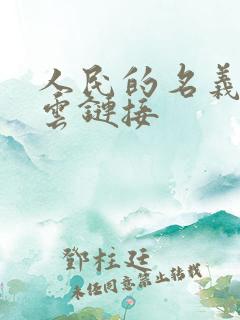 人民的名義
雲鏈接
鄧柱廷
未经同意禁止转载